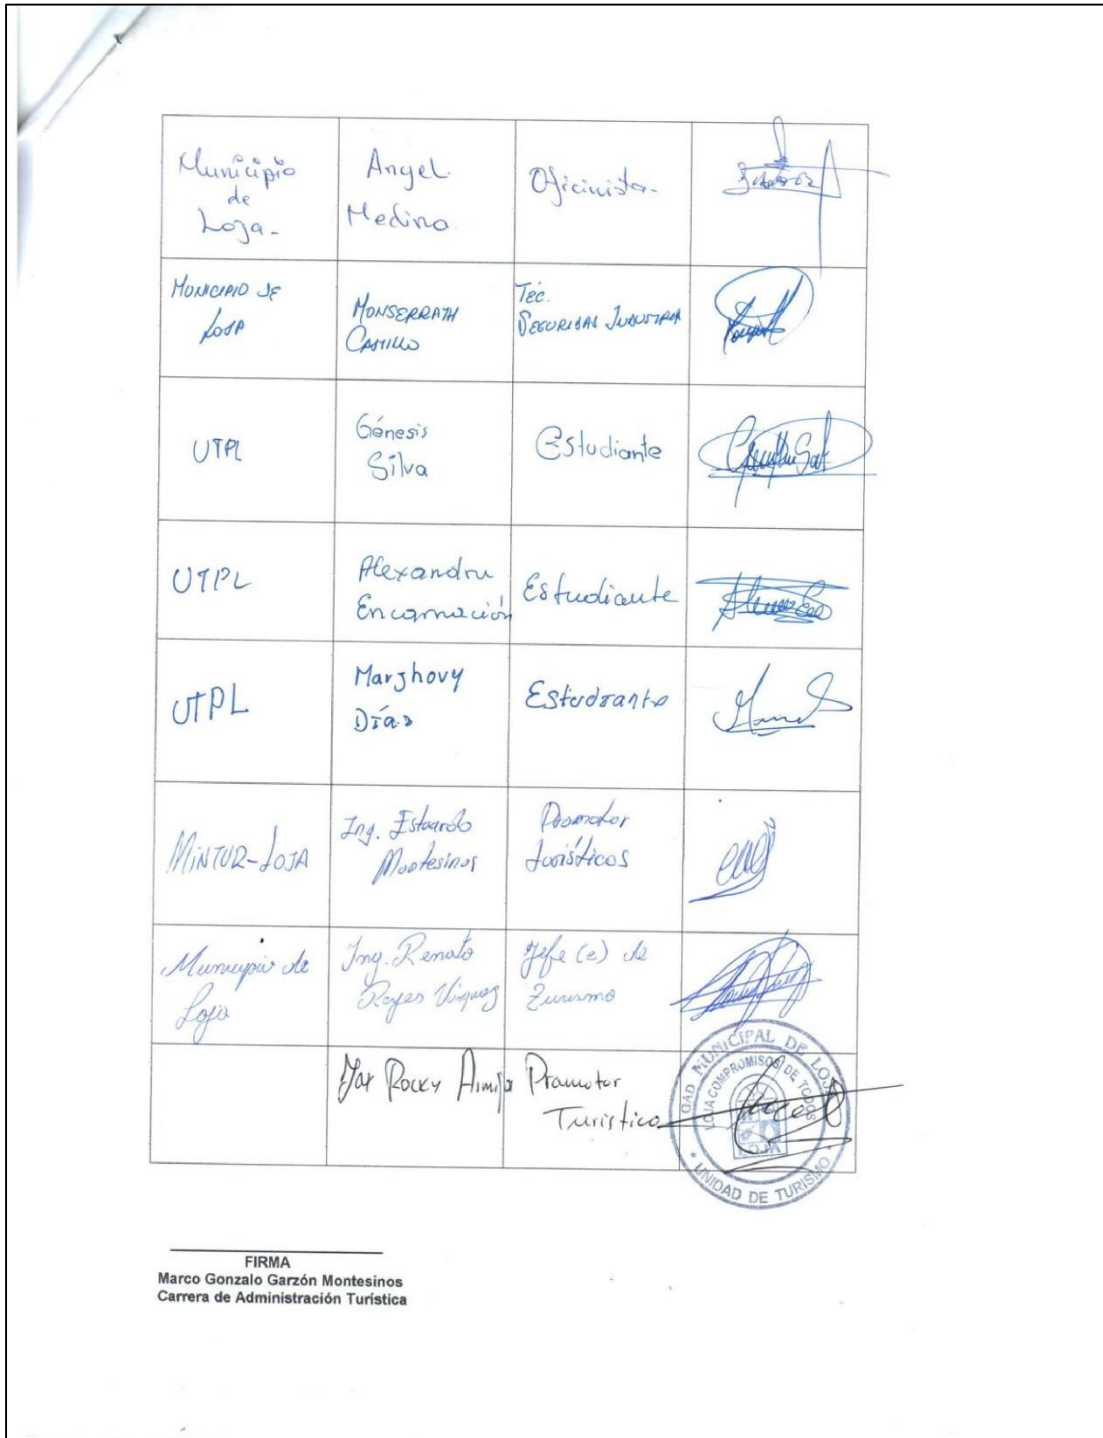 Municipio
de
Loja-
Angel
Medina
Oficinista-
MUNICIPIO DE
LOJA
MONSERRATH
CASTILLO
Téc.
SEGURIDAD INDUSTRIA
UTPL
Génesis
Silva
Estudiante
UTPL
Alexandra
Encarnación
Estudiante
UTPL
Marjhovy
Díaz
Estudiante
MINTUR-LOJA
Ing. Estuardo
Montesinos
Promotor
turísticos
Municipio de
Loja
Ing. Renato
Reyes
Jefe (e) de
Turismo
Rocky
Promotor
Turístico
GAD MUNICIPAL DE LOJA
LOJA COMPROMISOS DE TODOS
LOJA
* UNIDAD DE TURISMO *
FIRMA
Marco Gonzalo Garzón Montesinos
Carrera de Administración Turística